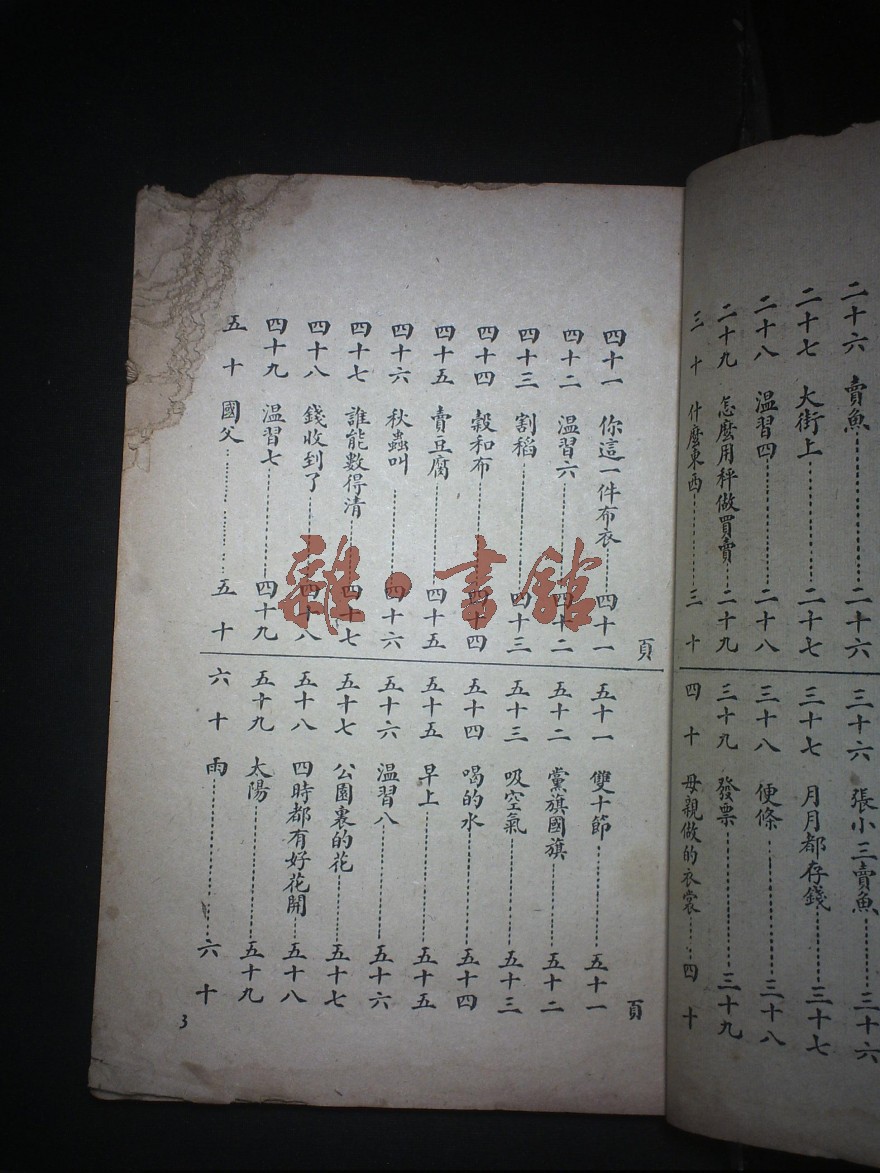 二十六 賣魚 二十六
二十七 大街上 二十七
二十八 温習四 二十八
二十九 怎麽用秤做買賣 二十九
三十 什麽東西 三十
三十六 張小三賣魚 三十六
三十七 月月都存錢 三十七
三十八 便條 三十八
三十九 發票 三十九
四十 母親做的衣裳 四十
頁
四十一 你這一件布衣 四十一
四十二 温習六 四十二
四十三 割稻 四十三
四十四 穀和布 四十四
四十五 賣豆腐 四十五
四十六 秋蟲叫 四十六
四十七 誰能數得清 四十七
四十八 錢收到了 四十八
四十九 温習七 四十九
五十 國父 五十
頁
五十一 雙十節 五十一
五十二 黨旗國旗 五十二
五十三 吸空氣 五十三
五十四 喝的水 五十四
五十五 早上 五十五
五十六 温習八 五十六
五十七 公園裏的花 五十七
五十八 四時都有好花開 五十八
五十九 太陽 五十九
六十 雨 六十
3
雜·書館